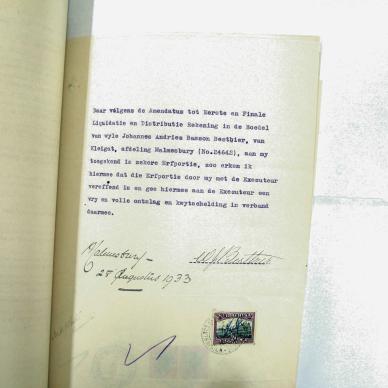 Daar volgens de Amendatus tot Eerste en Finale
Liquidatie en Distributie Rekening in de Boedel
van wyle Johannes Andries Basson Bestbier, van
Kleigat, afdeling Malmesbury (No.24642), aan my
toegekend is zekere Erfportie, zoo erken ik
hiermee dat die Erfportie door my met de Executeur
vereffend is en gee hiermee aan de Executeur een
vry en volle ontslag en kwytschelding in verband
daarmee.
Malmesbury
28 Augustus 1933